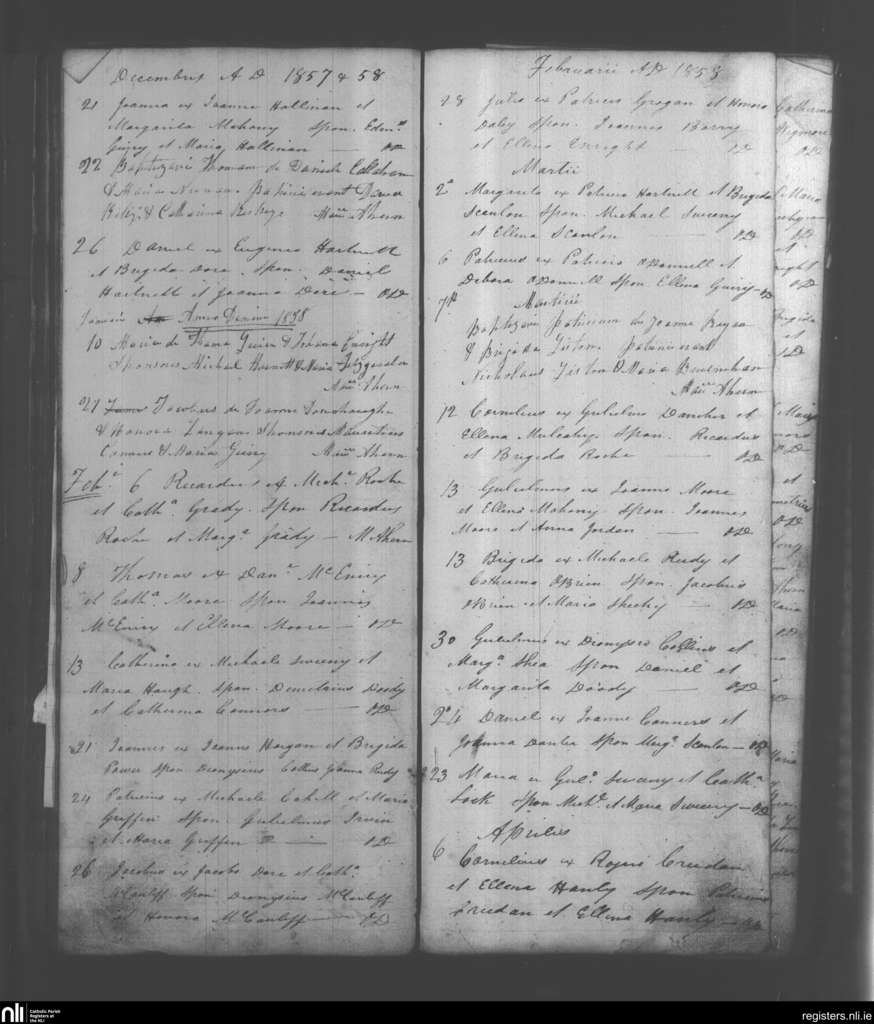 Decembris A D 1857 & 58
21 Joanna ex Joanne Hallinan et
Margarita Mahony Spon. Edmd
Guiry et Maria Hallinan — OD
22 Baptizavi Thomam de Daniele
& Maria patrini erant
& Catharina Mau Ahern
26 Daniel ex Eugenio Hartnett
et Brigida Dore Spon. Daniel
Hartnett et Joanna Dore — OD
Anno Domini 1858
10 Maria de & Johana Enright
Sponsores Michael & Maria Fitzgerald
Mau Ahern
27 Jacobus de Joanne Donohoughe
& Honora Sponsores Mauritius
& Maria Guiry Mau Ahern
Feb. 6 Ricardus ex Mich. Roche
et Cath. Grady. Spon Ricardus
Roche et Marg. Grady — M Ahern
8 Thomas ex Dan. McEniry
et Cath. Moore Spon Joannes
McEniry et Ellena Moore — OD
13 Catherina ex Michaele Sweeny et
Maria Haugh. Spon. Demetrius Doody
et Catherina Connors — OD
21 Joannes ex Joanne Horgan et Brigida
Power Spon Dionysius Collins Joanna Reidy
24 Patricius ex Michaele Cahill et Maria
Griffin Spon. Gulielmus Irwin
et Maria Griffin — OD
26 Jacobus ex Jacobo Dore et Cath.
McCauliff Spon Dionysius McCauliff
et Honora McCauliff — OD
Februarii AD 1858
28 Julia ex Patricio Grogan et Honora
Daley Spon. Joannes Barry
et Ellena Enright — OD
Martii
2 Margarita ex Patricio Hartnett et Brigida
Scanlon Spon. Michael Sweeny
et Ellena Scanlon — OD
6 Patricius ex Patricio ODonnell et
Debora ODonnell Spon Ellena Guiry — OD
7 Martii
Baptizavi Patricium de Joanne
& Brigida Liston patrini erant
Nicholaus Liston & Maria
Mau Ahern
12 Cornelius ex Gulielmo Danaher et
Ellena Mulcahy. Spon. Ricardus
et Brigida Roche — OD
13 Gulielmus ex Joanne Moore
et Ellena Mahony Spon. Joannes
Moore et Anna Jordan — OD
13 Brigida ex Michaele Reidy et
Catherina OBrien Spon. Jacobus
OBrien et Maria Sheehy — OD
30 Gulielmus ex Dionysio Collins et
Marg. Shea Spon Daniel et
Margarita Doody — OD
Daniel ex Joanne Connors et
Joanna Spon Marg. Scanlon — OD
23 Maria ex Gul. Sweeny et Cath.
Spon Mich. et Maria Sweeny — OD
Aprilis
6 Cornelius ex Rogero Creedan
et Ellena Hanly Spon Patricius
Creedan et Ellena Hanly — OD
Catherina
OD
Maria
OD
et
OD
et
OD
et
OD
nli Catholic Parish
Registers at
the NLI
registers.nli.ie